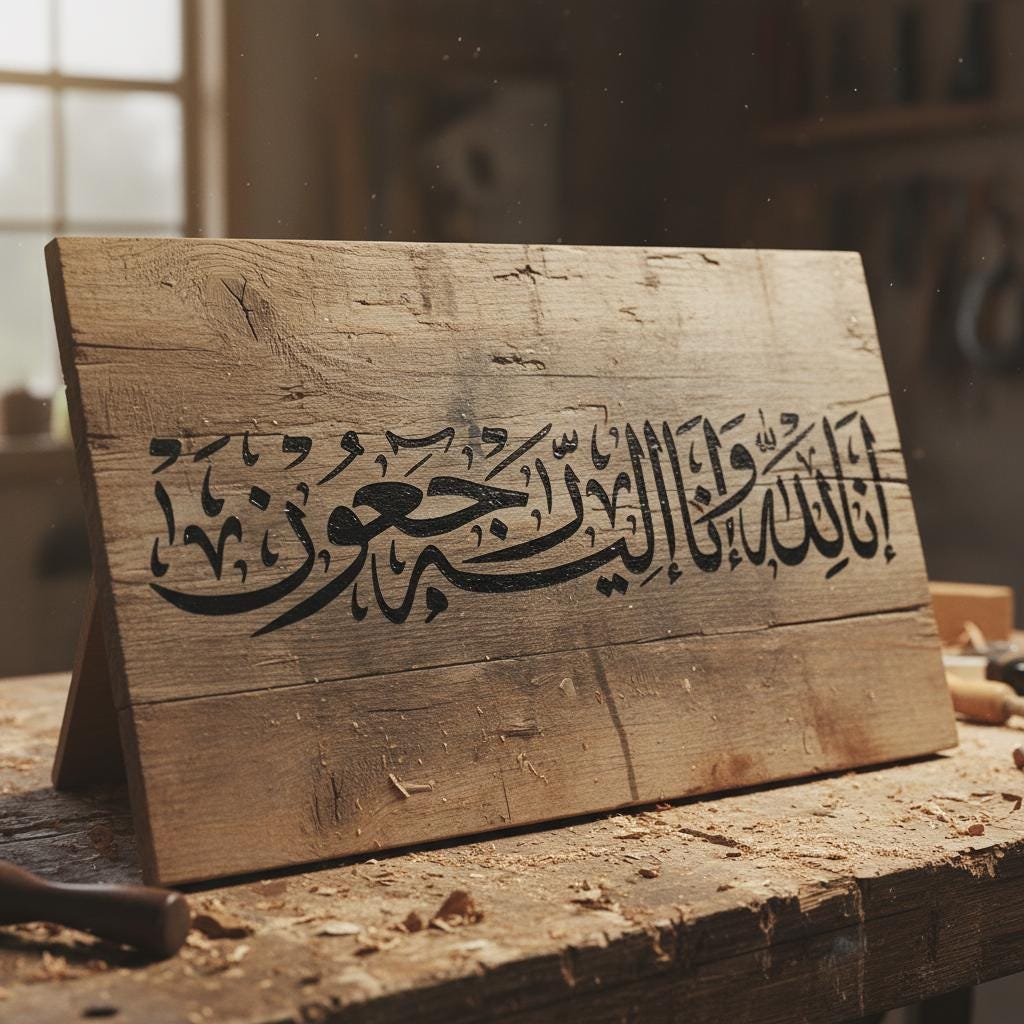 انا لله وانا اليه رجعون